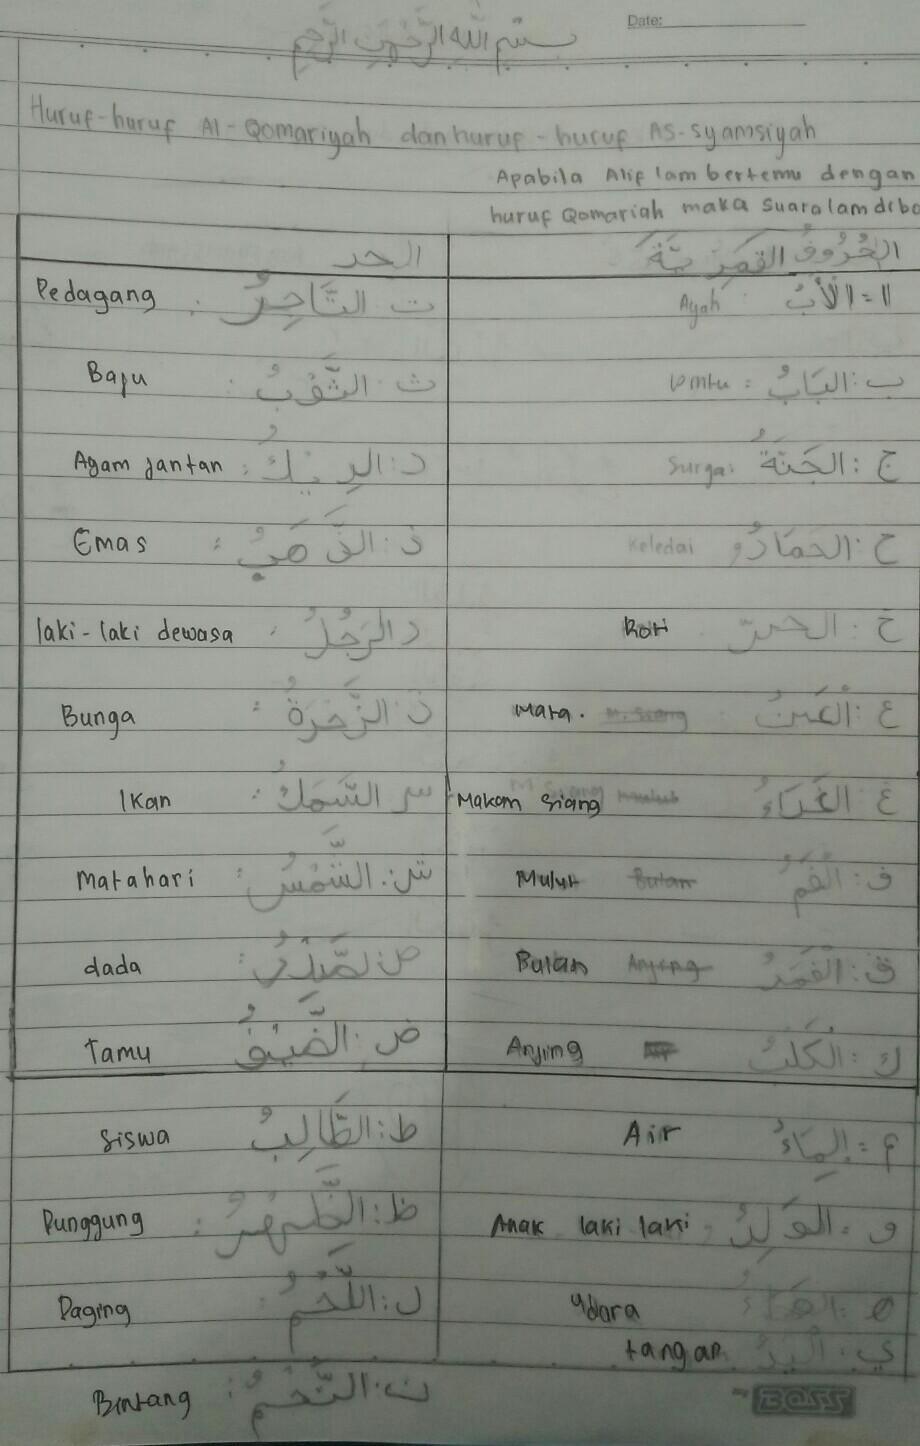 Date:
بسم الله الرحمن الرحيم
Huruf-huruf Al-Qomariyah dan huruf-huruf AS-syamsiyah
Apabila Alif lam bertemu dengan
huruf Qomariah maka suara lam diba
الحُرُوفُ القَمَرِيَّةُ الحد
اا = الْأَبُ : Ayah ت التَّاجِرُ : Pedagang
ب : البَابُ : ث : الثَّوْبُ : Baju
ج : الجَنَّةُ Surga: د : الدِيكُ : Ayam jantan
ح : الحِمَارُ Keledai ذ : الذَّهَبُ : Emas
خ : Roti ر الرَّجُلُ : laki-laki dewasa
ع : الْعَيْنُ Mata. الزَّهْرَةُ : Bunga
غ : الغَدَاءُ Makam siang س السَّمَكُ : Ikan
ف : الفَمُ Mulut ش : الشَّمْسُ : Matahari
ق : القَمَرُ Bulan ص : dada
ك : الْكَلْبُ Anjing ض : الضَّيْفُ Tamu
م : المَاءُ Air ط : الطَّالِبُ Siswa
و : الوَلَدُ : Anak laki laki ظ : الظَّهْرُ : Punggung
ه : الهَوَاءُ Udara ل : اللَّحْمُ : Daging
ي : الْيَدُ tangan
ن : النَّجْمُ : Bintang
BOSS